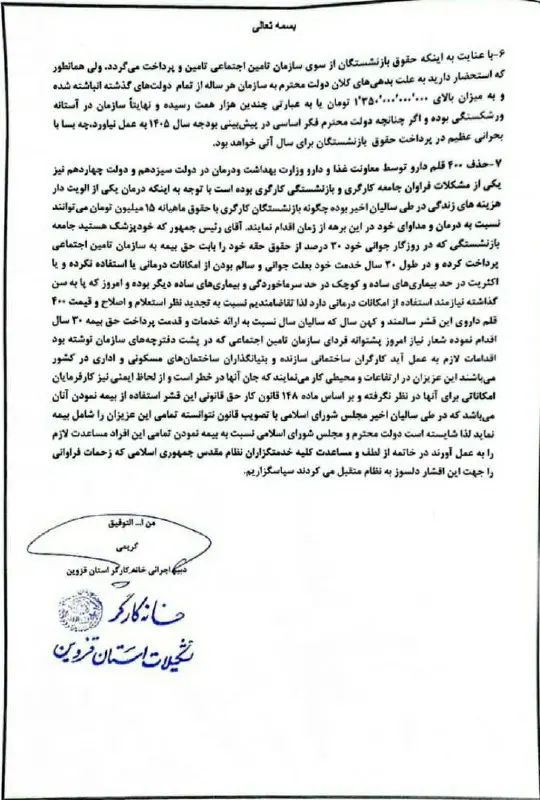 بسمه تعالی
۶-با عنایت به اینکه حقوق بازنشستگان از سوی سازمان تامین اجتماعی تامین و پرداخت می‌گردد، ولی همانطور
که استحضار دارید به علت بدهی‌های کلان دولت محترم به سازمان هر ساله از تمام دولت‌های گذشته انباشته شده
و به میزان بالای ۱٬۳۵۰٬۰۰۰٬۰۰۰٬۰۰۰ تومان یا به عبارتی چندین هزار همت رسیده و نهایتاً سازمان در آستانه
ورشکستگی بوده و اگر چنانچه دولت محترم فکر اساسی در پیش‌بینی بودجه سال ۱۴۰۵ به عمل نیاورد، چه بسا با
بحرانی عظیم در پرداخت حقوق بازنشستگان برای سال آتی خواهد بود.
۷-حذف ۴۰۰ قلم دارو توسط معاونت غذا و دارو وزارت بهداشت ودرمان در دولت سیزدهم و دولت چهاردهم نیز
یکی از مشکلات فراوان جامعه کارگری و بازنشستگی کارگری بوده است با توجه به اینکه درمان یکی از الویت دار
هزینه های زندگی در طی سالیان اخیر بوده چگونه بازنشستگان کارگری با حقوق ماهیانه ۱۵ میلیون تومان می‌توانند
نسبت به درمان و مداوای خود در این برهه از زمان اقدام نمایند. آقای رئیس جمهور که خودپزشک هستید جامعه
بازنشستگی که در روزگار جوانی خود ۳۰ درصد از حقوق حقه خود را بابت حق بیمه به سازمان تامین اجتماعی
پرداخت کرده و در طول ۳۰ سال خدمت خود بعلت جوانی و سالم بودن از امکانات درمانی یا استفاده نکرده و یا
اکثریت در حد بیماری‌های ساده و کوچک در حد سرماخوردگی و بیماری‌های ساده دیگر بوده و امروز که پا به سن
گذاشته نیازمند استفاده از امکانات درمانی دارد لذا تقاضامندیم نسبت به تجدید نظر استعلام و اصلاح و قیمت ۴۰۰
قلم داروی این قشر سالمند و کهن سال که سالیان سال نسبت به ارائه خدمات و قدمت پرداخت حق بیمه ۳۰ سال
اقدام نموده شعار نیاز امروز پشتوانه فردای سازمان تامین اجتماعی که در پشت دفترچه‌های سازمان نوشته بود
اقدامات لازم به عمل آید کارگران ساختمانی سازنده و بنیانگذاران ساختمان‌های مسکونی و اداری در کشور
می‌باشند این عزیزان در ارتفاعات و محیطی کار می‌نمایند که جان آنها در خطر است و از لحاظ ایمنی نیز کارفرمایان
امکاناتی برای آنها در نظر نگرفته و بر اساس ماده ۱۴۸ قانون کار حق قانونی این قشر استفاده از بیمه نمودن آنان
می‌باشد که در طی سالیان اخیر مجلس شورای اسلامی با تصویب قانون نتوانسته تمامی این عزیزان را شامل بیمه
نماید لذا شایسته است دولت محترم و مجلس شورای اسلامی نسبت به بیمه نمودن تمامی این افراد مساعدت لازم
را به عمل آورند در خاتمه از لطف و مساعدت کلیه خدمتگزاران نظام مقدس جمهوری اسلامی که زحمات فراوانی
را جهت این اقشار دلسوز به نظام متقبل می کردند سپاسگزاریم.
من ا... التوفیق
کریمی
دبیر اجرانی خانه کارگر استان قزوین
خانه کارگر
تشکیلات استان قزوین